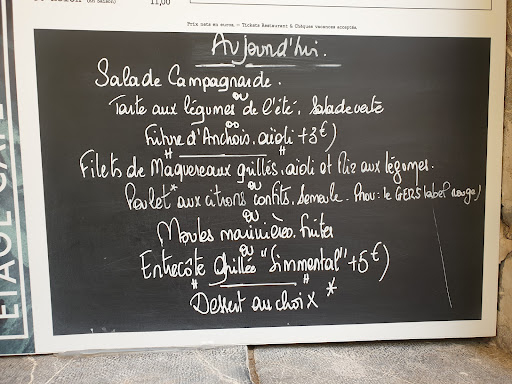 11,00
Prix nets en euros. - Tickets Restaurant & Chèques vacances acceptés.
Aujourd'hui.
Salade Campagnarde.
ou
Tarte aux légumes de l'été. Salade verte
ou
Friture d'Anchois. aïoli +3€)
Filets de Maquereaux grillés. aïoli et Riz aux légumes.
ou
Poulet* aux citrons confits. Semoule. Prov: le GERS label rouge)
ou
Moules marinières. frites
ou
Entrecôte Grillée "Simmental" +5€)
* Dessert au choix *